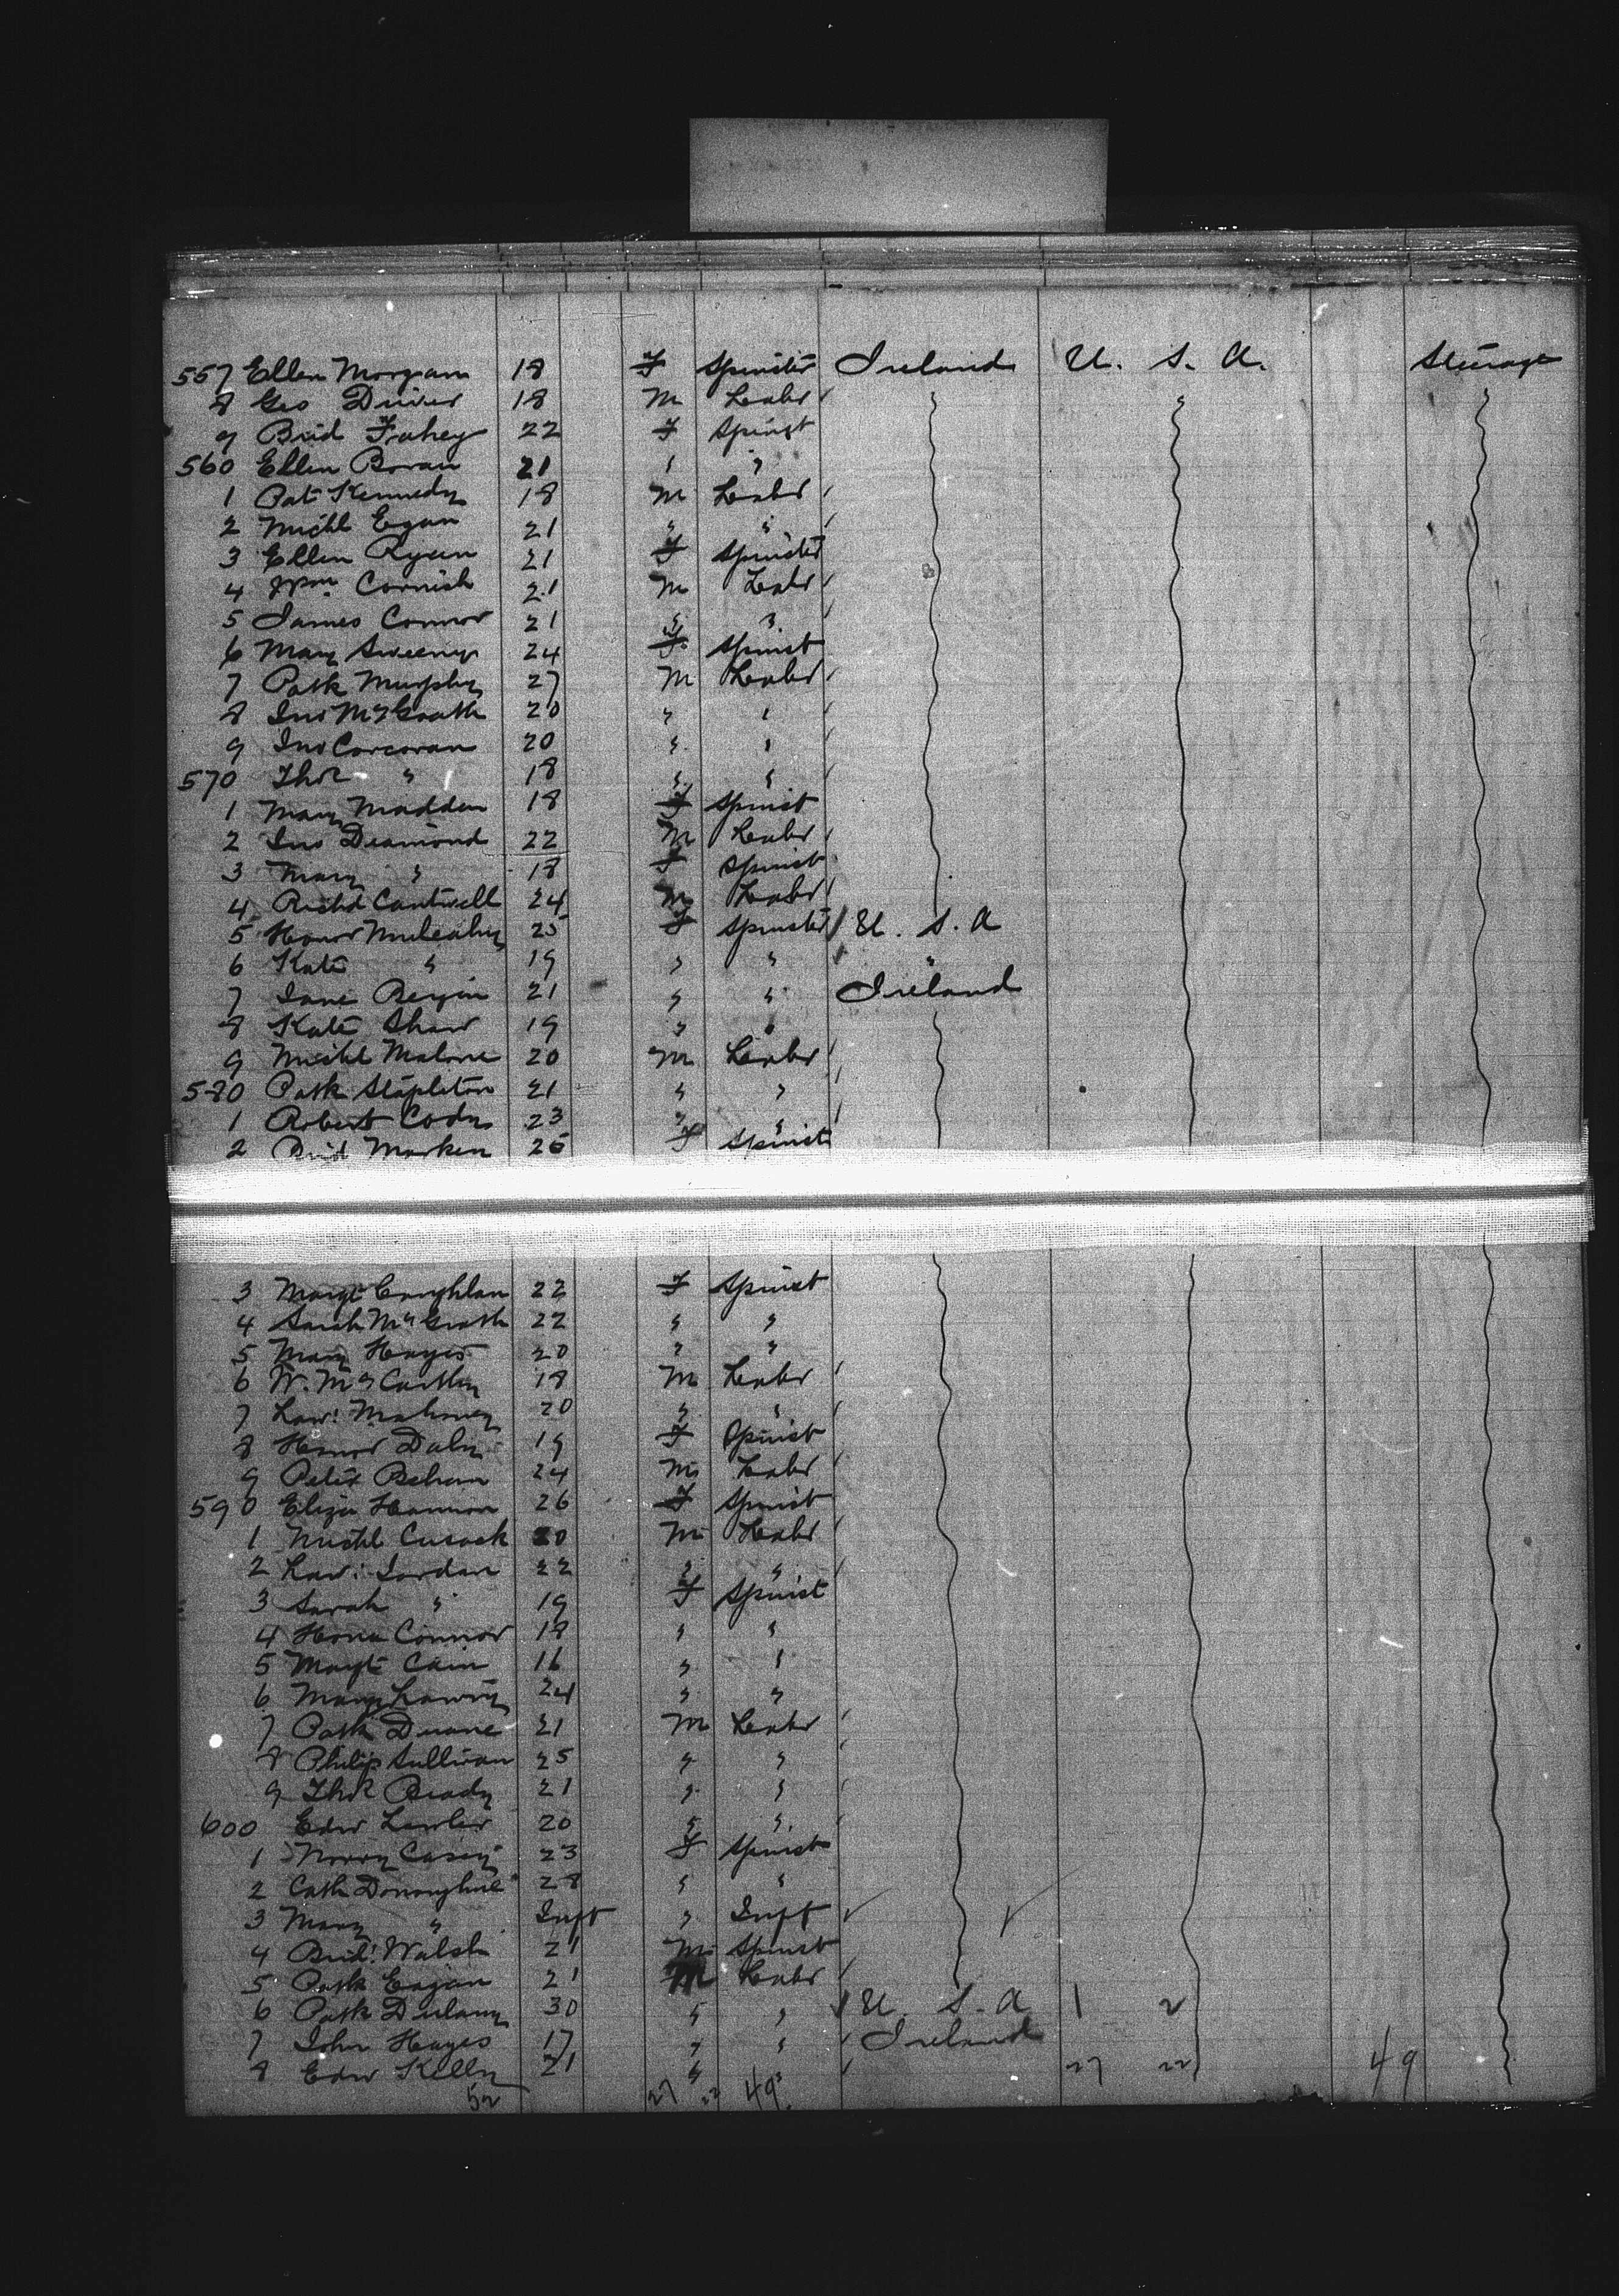 557 Ellen Morgan 18 F Spinster Ireland U. S. A. Steerage
8 Geo Driver 18 M Labr
9 Brid Fahey 22 F Spinst
560 Ellen Boran 21 " "
1 Pat Kennedy 18 M Labr
2 Michl Egan 21 " "
3 Ellen Ryan 21 F Spinster
4 Wm Cornish 21 M Labr
5 James Connor 21 " "
6 Mary Sweeny 24 F Spinst
7 Patk Murphy 27 M Labr
8 Jno McGrath 20 " "
9 Jno Corcoran 20 " "
570 Thos " 18 " "
1 Mary Madden 18 F Spinst
2 Jno Deamond 22 M Labr
3 Mary " 18 F Spinst
4 Richd Cantwell 24 M Labr
5 Honor Mulcahy 25 F Spinster U. S. A
6 Kate " 19 " " "
7 Jane Bergin 21 " " Ireland
8 Kate Shaw 19 " "
9 Michl Malone 20 M Labr
580 Patk Stapleton 21 " "
1 Robert Cody 23 " "
2 Brid Marken 26 F Spinst
3 Margt Coughlan 22 F Spinst
4 Sarah McGrath 22 " "
5 Mary Hayes 20 " "
6 W. McCarthy 18 M Labr
7 Law: Mahoney 20 " "
8 Honor Daly 19 F Spinst
9 Peter Behan 24 M Labr
590 Eliza Hannon 26 F Spinst
1 Michl Cusack 20 M Labr
2 Law: Jordan 22 " "
3 Sarah " 19 F Spinst
4 Hona Connor 18 " "
5 Margt Cain 16 " "
6 Mary Lawry 24 " "
7 Patk Duane 21 M Labr
8 Philip Sullivan 25 " "
9 Thos Brady 21 " "
600 Edw Lawler 20 " "
1 Norry Casey 23 F Spinst
2 Cath Donoughue 28 " "
3 Mary " Inft " Inft
4 Brid: Walsh 21 M Spinst
5 Patk Eagan 21 M Labr
6 Patk Dulany 30 " " U. S. A 1 2
7 John Hayes 17 " " Ireland
8 Edw Kelly 21 " 27 22 49
52 27 22 49